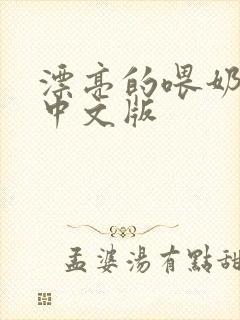 漂亮的喂奶
中文版
孟婆湯有點甜